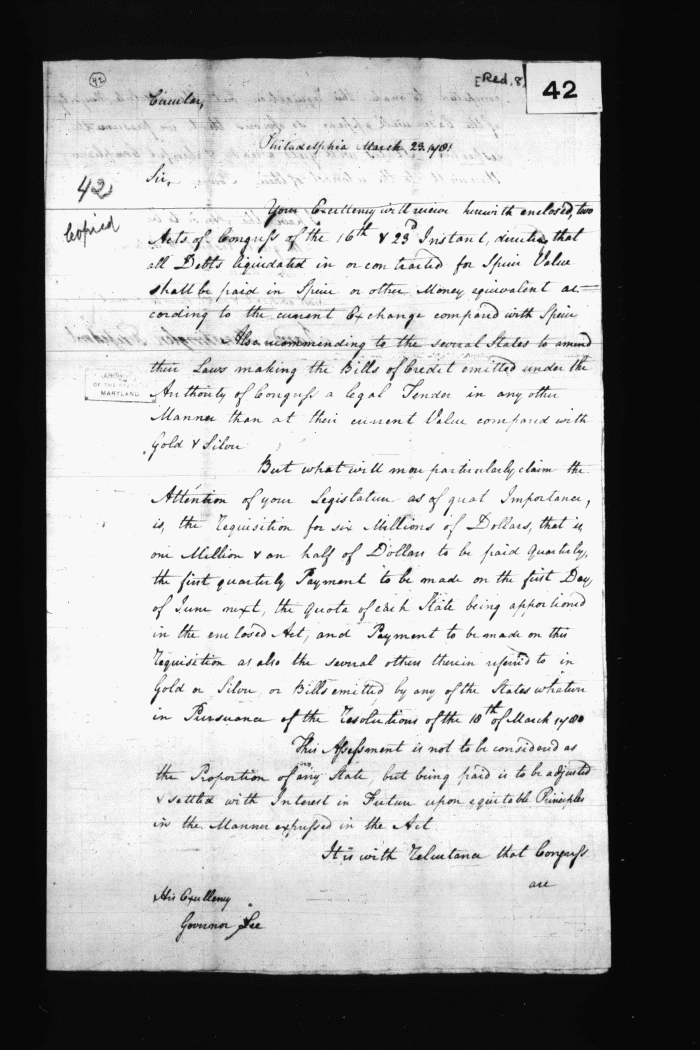 42
[Red. 8]
42
Circular,
Philadelphia March 23. 1781
Sir,
42
Copied
Your Excellency will receive herewith enclosed, two
Acts of Congress of the 16th & 23d Instant, directing that
all Debts liquidated in or contracted for Specie Value
shall be paid in Specie or other Money equivalent ac-
cording to the current Exchange compared with Specie
Also recommending to the several States to amend
their Laws making the Bills of Credit emitted under the
Authority of Congress a legal Tender in any other
Manner than at their current Value compared with
Gold & Silver
OF THE
MARYLAND
But what will more particularly claim the
Attention of your Legislature as of great Importance,
is, the Requisition for six Millions of Dollars, that is
one Million & an half of Dollars to be paid Quarterly,
the first quarterly Payment to be made on the first Day
of June next, the Quota of each State being apportioned
in the enclosed Act, and Payment to be made on this
Requisition as also the several others therein referred to in
Gold or Silver, or Bills emitted by any of the States whatever
in Pursuance of the Resolutions of the 18th of March 1780
This Assessment is not to be considered as
the Proportion of any State, but being paid is to be adjusted
& settled with Interest in Future upon equitable Principles
in the Manner expressed in the Act
It is with Reluctance that Congress
are
His Excellency
Governor Lee